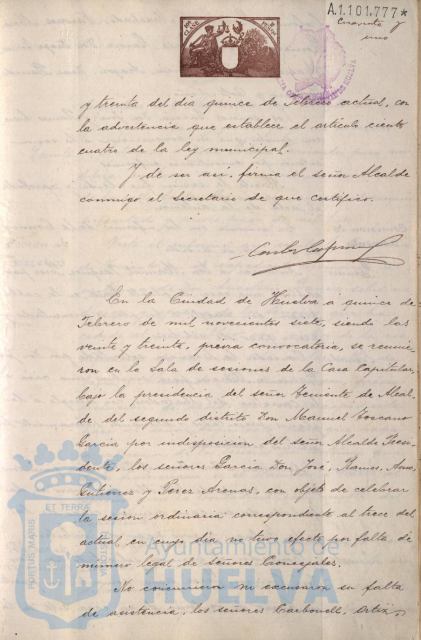 A.1.101,777*
Cuarenta y
uno
y treinta del dia quince de Febrero actual, con
la advertencia que establece el artículo ciento
cuatro de la ley municipal.
Y de ser asi, firma el señor Alcalde
conmigo el Secretario de que certifico.
En la Ciudad de Huelva á quince de
Febrero de mil novecientos siete, siendo las
veinte y treinta, previa convocatoria, se reunie-
ron en la Sala de sesiones de la Casa Capitular,
bajo la presidencia del señor Teniente de Alcal-
de del segundo distrito Don Manuel Toscano
Garcia por indisposicion del señor Alcalde Presi-
dente, los señores Garcia Don José, Ramos,
Gutierrez y Perez Arenas, con objeto de celebrar
la sesion ordinaria correspondiente al trece del
actual en cuyo dia no tuvo efecto por falta de
número legal de señores Concejales.
No concurrieron ni excusaron su falta
de asistencia, los señores Carbonell, Ortiz,
PORTUS MARIS
ET TERRÆ
CUSTODIA
Ayuntamiento de
HUELVA